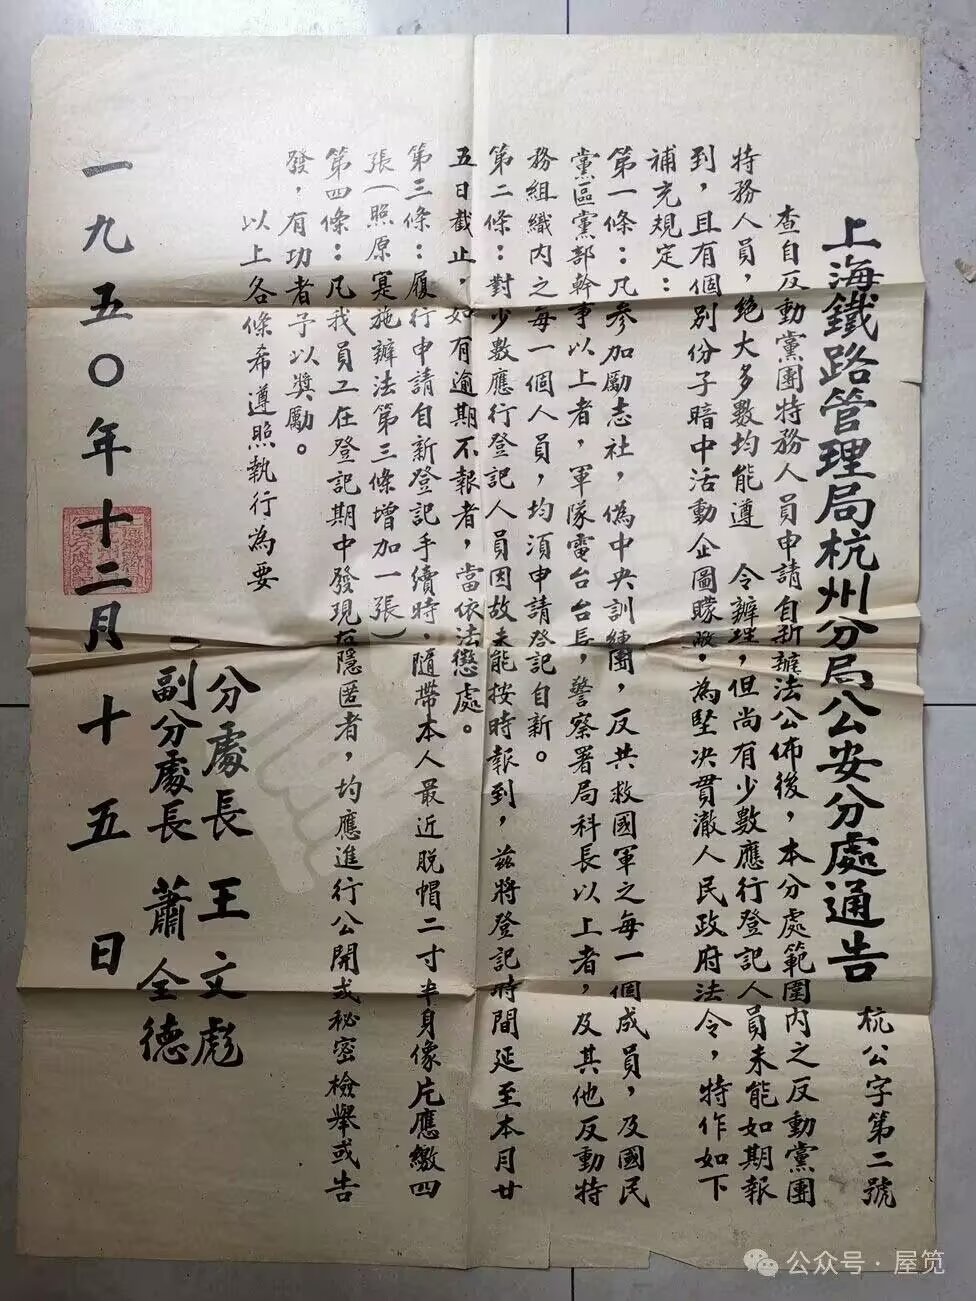 上海鐵路管理局杭州分局公安分處通告
杭公字第二號
查自反動黨團特務人員申請自新辦法公佈後，本分處範圍内之反動黨團
特務人員，絶大多數均能遵　令辦理，但尚有少數應行登記人員未能如期報
到，且有個别份子暗中活動企圖矇蔽．為堅决貫澈人民政府法令，特作如下
補充規定：
第一條：凡参加勵志社，偽中央訓練團，反共救國軍之每一個成員，及國民
黨區黨部幹事以上者，軍隊電台台長，警察署局科長以上者，及其他反動特
務組織内之每一個人員，均須申請登記自新。
第二條：對少數應行登記人員因故未能按時報到，兹將登記时間延至本月廿
五日截止，如有逾期不報者，當依法懲處。
第三條：履行申請自新登記手續時．隨帶本人最近脱帽二寸半身像片應繳四
張（照原寔施辦法第三條增加一張）
第四條：凡我員工在登記期中發現有隱匿者，均應進行公開或秘密檢舉或告
發，有功者予以獎勵。
以上各條希遵照執行為要
分處長　王文彪
副分處長　蕭全德
一九五〇年十二月十五日
公众号·屋笕